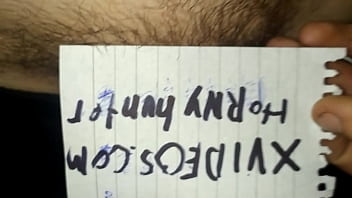 XVIDEOS.COM
HORNY hunter